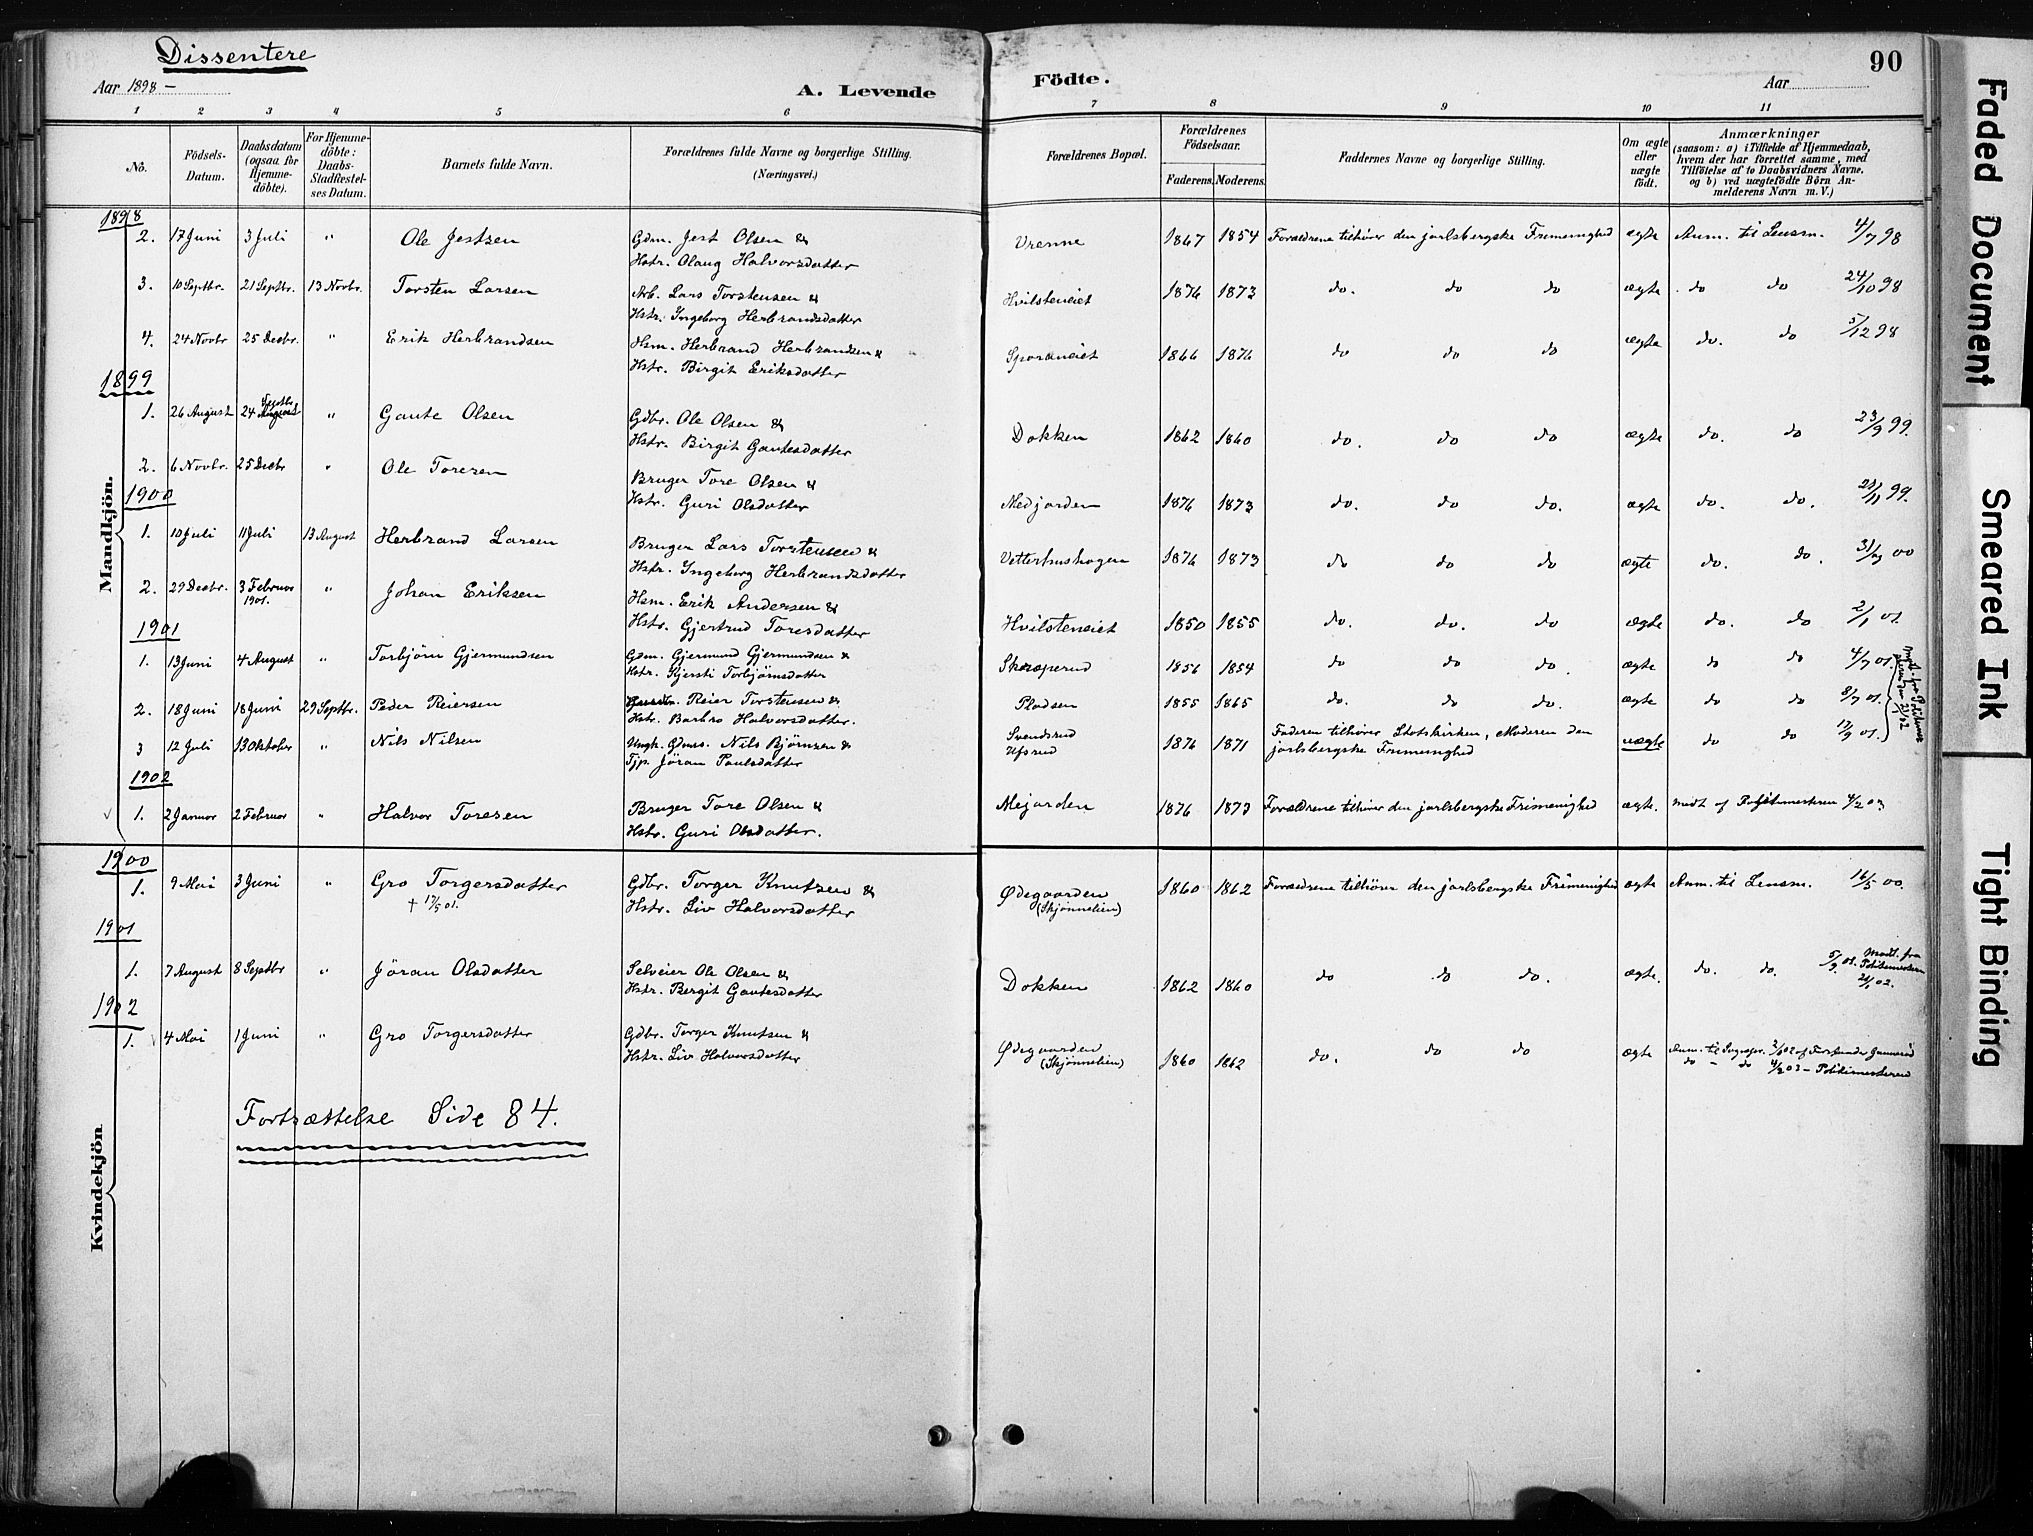 Dissentere
Aar 1898 –
A. Levende Födte.
Aar
90
1 2 3 4 5 6 7 8 9 10 11
No.
Födsels-Datum.
Daabsdatum (ogsaa for Hjemme-döbte).
For Hjemme-döbte: Daabs-Stadfæstel-ses Datum.
Barnets fulde Navn.
Forældrenes fulde Navne og borgerlige Stilling.
(Næringsvei.)
Forældrenes Bopæl.
Forældrenes Födselsaar.
Faderens. Moderens.
Faddernes Navne og borgerlige Stilling.
Om ægte eller uægte födt.
Anmærkninger
(saasom: a) i Tilfælde af Hjemmedaab, hvem der har forrettet samme, med Tilföielse af to Daabsvidners Navne, og b) ved uægtefödte Börn An-melderens Navn m. V.)
Mandkjön.
1898
2. 17 Juni 3 Juli " Ole Jestsen Gdm. Jest Olsen & Vrenne 1867 1854 Forældrene tilhører den jarlsbergske Frimenighed ægte Anm. til Lensm. 4/7 98
Hstr. Olaug Halvorsdatter
3. 10 Septbr. 21 Septbr. 13 Novbr. Torsten Larsen Arb. Lars Torstensen & Hvilsteneiet 1876 1873 do. do do ægte do do 24/10 98
Hstr. Ingeborg Herbrandsdatter
4. 24 Novbr 25 Decbr. " Erik Herbrandsen Hsm. Herbrand Herbrandsen & Sporaneiet 1866 1876 do do do ægte do. do 5/12 98
Hstr. Birgit Eriksdatter
1899
1. 26 August 24 August Septbr " Gaute Olsen Gdbr. Ole Olsen & Dokken 1862 1860 do. do do ægte do. do 23/9 99.
Hstr. Birgit Gautesdatter
2. 6 Novbr. 25 Decbr " Ole Toresen Bruger Tore Olsen & Medjorden 1876 1873 do. do do. ægte do. do. 21/11 99.
Hstr. Guri Olsdatter
1900
1. 10 Juli 11 Juli 13 August Herbrand Larsen Bruger Lars Torstensen & Vetterhushagen 1876 1873 do do do ægte do. do. 31/7 00
Hstr. Ingeborg Herbrandsdatter
2. 29 Decbr. 3 Februar 1901. " Johan Eriksen Hsm. Erik Andersen & Hvilsteneiet 1850 1855 do. do. do ægte do. do 2/1 01.
Hstr. Gjertrud Toresdatter
1901
1. 13 Juni 4 August " Torbjörn Gjermundsen Gdm. Gjermund Gjermundsen & Skoperud 1856 1854 do do do. ægte do do 4/7 01.
Hstr. Kjersti Torbjörnsdatter
2. 18 Juni 18 Juni 29 Septbr. Peder Reiersen Reier Torstensen & Pladsen 1855 1865 do. do do. ægte do do 8/7 01.
Hstr. Barbro Halvorsdatter.
3 12 Juli 13 Oktober " Nils Nilsen Ungk. Gdmss. Nils Björnsen & Svendsrud Ufsrud 1876 1871 Faderen tilhører Statskirken, Moderen den jarlsbergske Frimenighed uægte do do 17/9 01.
Tjp. Jöran Paulsdatter
1902
1. 2 Januar 2 Februar " Halvor Toresen Bruger Tore Olsen & Mejorden 1876 1873 Forældrene tilhører den jarlsbergske Frimenighed ægte. modt af Politimesteren 4/2 03
Hstr. Guri Olsdatter.
Kvindekjön
1900
1. 9 Mai 3 Juni " Gro Torgersdatter Gdbr. Torger Knutsen & Ødegaarden (Skjønnelien) 1860 1862 Forældrene tilhører den jarlsbergske Frimenighed ægte Anm. til Lensm. 16/5 00.
† 17/5 01. Hstr. Liv Halvorsdatter
1901
1. 7 August 8 Septbr " Jöran Olsdatter Selveier Ole Olsen & Dokken 1862 1860 do do do. ægte. do. do. 5/9. 01. Modt. fra Politimesteren 2/1 02.
Hstr. Bergit Gautesdatter
1902
1. 4 Mai 1 Juni " Gro Torgersdatter Gdbr. Torger Knutsen & Ødegaarden (Skjønnelien) 1860 1862 do. do do ægte Anm. til Sognepr. 3/6 02 af Forstander
Hstr. Liv Halvorsdatter do – do 4/2 03 – Politimesteren
Fortsættelse Side 84.
Faded Document
Smeared Ink
Tight Binding